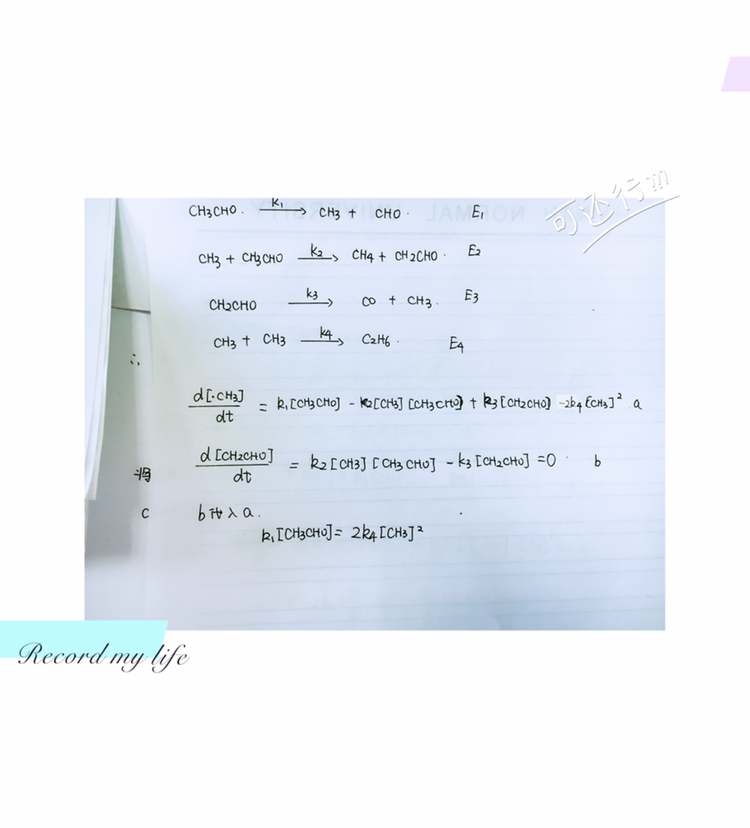 可还行!!!
CH3CHO. k1→ CH3 + CHO· E1
CH3 + CH3CHO k2→ CH4 + CH2CHO· E2
CH2CHO k3→ CO + CH3. E3
CH3 + CH3 k4→ C2H6. E4
∴
d[·CH3]/dt = k1[CH3CHO] - k2[CH3][CH3CHO] + k3[CH2CHO] - 2k4[CH3]² a
将 d[CH2CHO]/dt = k2[CH3][CH3CHO] - k3[CH2CHO] = 0 b
c b代入a.
k1[CH3CHO] = 2k4[CH3]²
Record my life